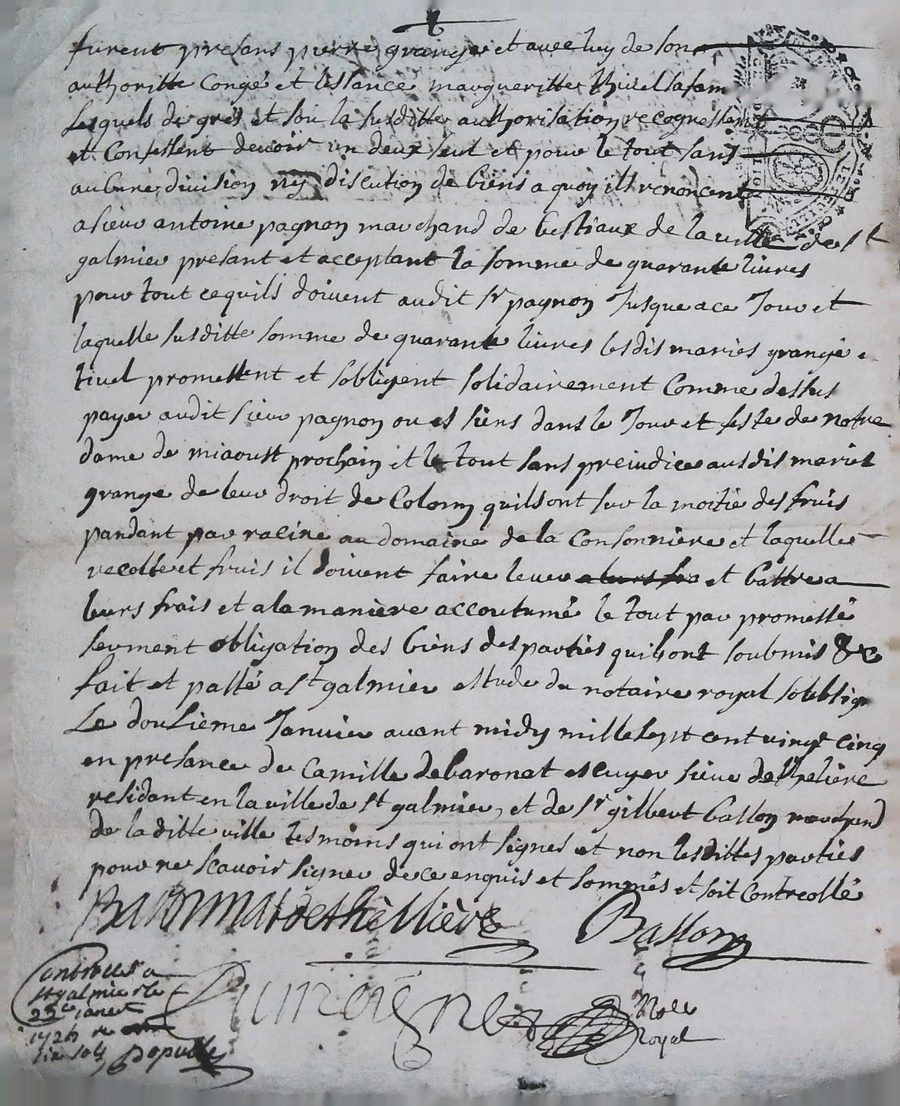 furent presans pierre grange et avec luy de son
authoritte Congé et Assance margueritte thivel sa fam
Lesquels de gres et sou la susditte authorisation recognessent
et Confessent devoir un deux seul et pour le tout sans
aucune division ny discution de biens a quoy ils renoncent
a sieur antoine pagnon marchand de bestiaux de la ville de st
galmier presant et acceptant la somme de quarante livres
pour tout ce quils doivent audit sr pagnon Jusque a ce Jour et
laquelle susditte somme de quarante livres lesdis mariés grange e
tivel promettent et sobligent solidairement Comme dessus
payer audit sieur pagnon ou es siens dans le Jour et feste de notre
dame de miaoust prochain et le tout sans preiudice ausdis mariés
grange de leur droit de Colom quils ont sur la moitié des fruis
pandant par racine au domaine de la Consonnière et laquelle
recolte et fruis il doivent faire lever a leurs fra et battre a
leurs frais et a la manière accoutumé le tout par promesse
serment obligation des biens des parties quils ont soubmis &c
fait et passé a st galmier estude du notaire royal soubsign
Le dousieme Janvier avant midy mille sept cent vingt cinq
en presance de Camille de baronat escuyer sieur de
residant en la ville de st galmier, et de sr gilbert basson marchand
de la ditte ville tesmoins qui ont signes et non lesdittes parties
pour ne scavoir signer de ce enquis et sommés et soit controllé
Basson
Controllé a
st galmier le
25e janer
172 re
six sols
Nore
Royal